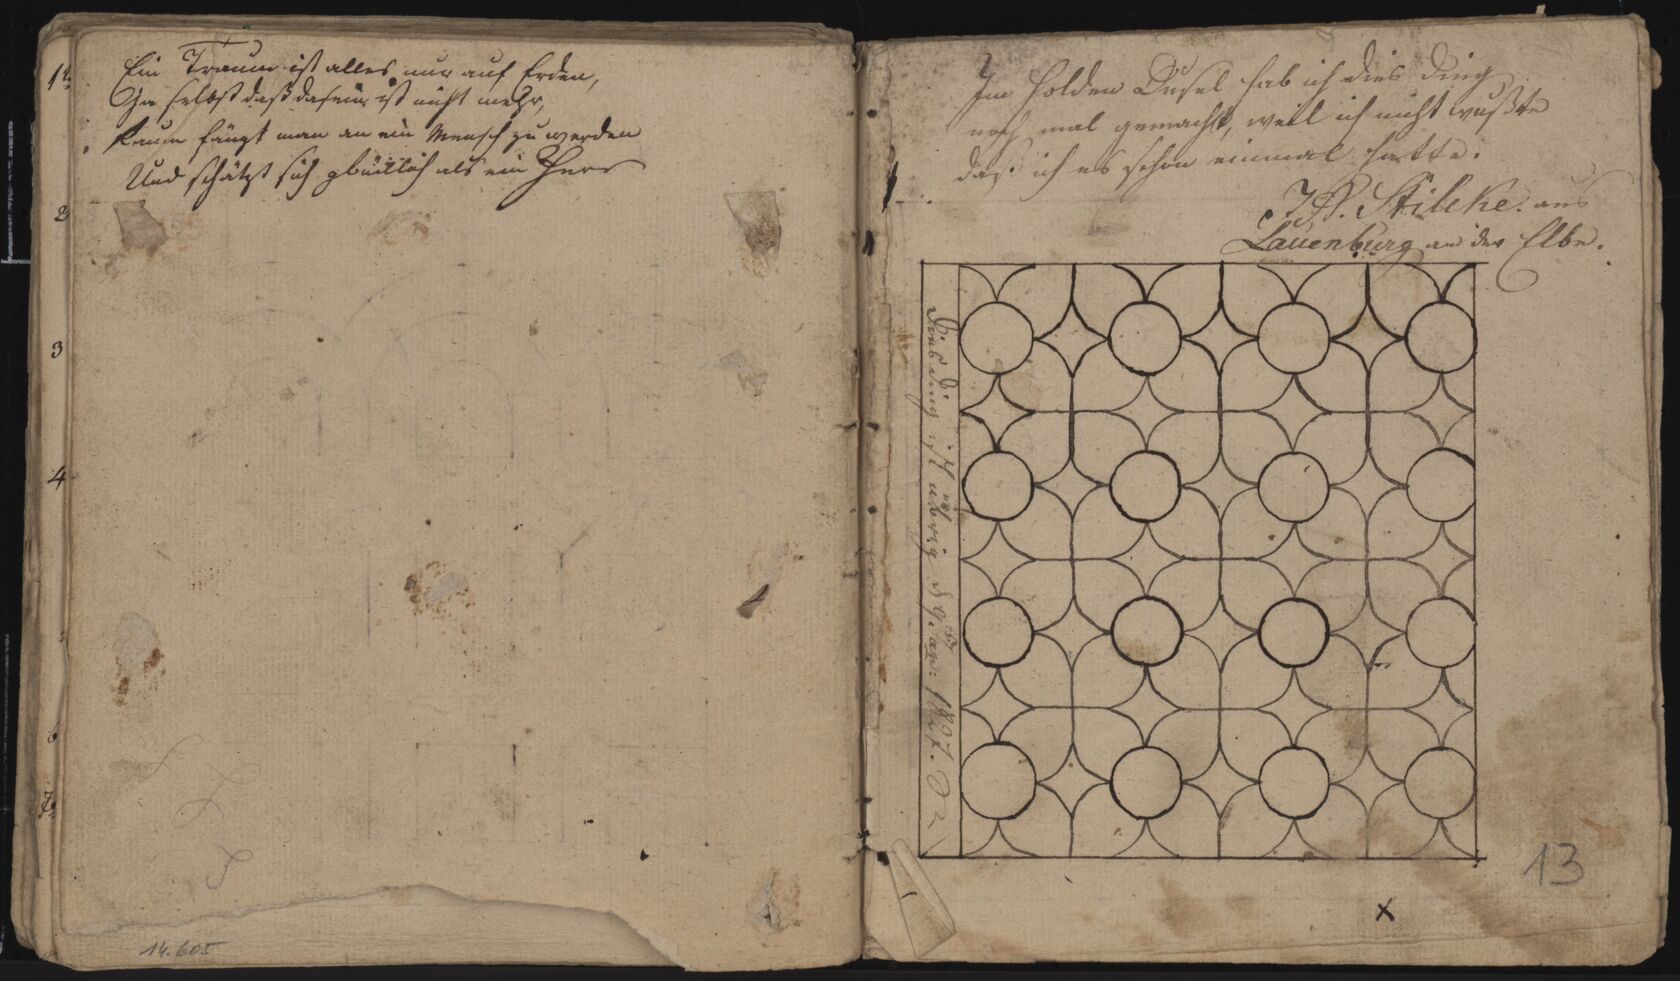 Ein Traum ist alles nur auf Erden,
Ja selbst daß dasein ist nicht mehr,
Kaum fängt man an ein Mensch zu werden
Und schätzt sich als ein Herr
1
2
3
4
6
7
14.605
Im holden Dusel hab ich dies Ding
noch mal gemacht, weil ich nicht wußte
daß ich es schon einmal hatte.
Stilcke. aus
Lauenburg an der Elbe.
Dies Ding ist übrig 1827.
13
x